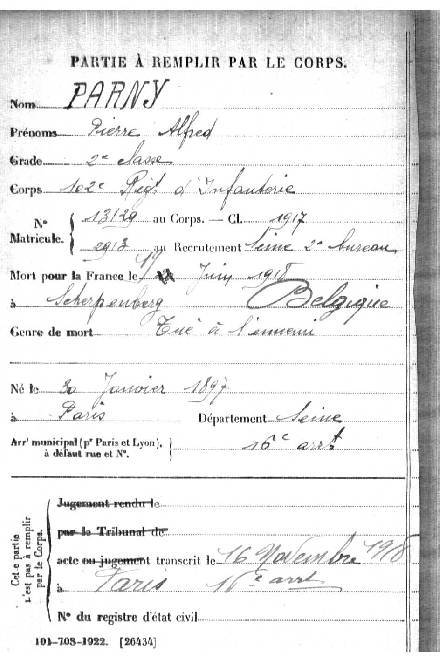 PARTIE À REMPLIR PAR LE CORPS.
Nom PARNY
Prénoms Pierre Alfred
Grade 2e Classe
Corps 102e Régt d'Infanterie
N° Matricule. { 13129 au Corps. — Cl. 1917
2913 au Recrutement Seine 2e bureau
Mort pour la France le 19 Juin 1918
à Scherpenberg Belgique
Genre de mort Tué à l'ennemi
Né le 30 Janvier 1897
à Paris Département Seine
Arrt municipal (pr Paris et Lyon), à défaut rue et N°. } 16e arrt
Cette partie n'est pas à remplir par le Corps.
Jugement rendu le
par le Tribunal de
acte ou jugement transcrit le 16 Novembre 1918
à Paris 16e arrt
N° du registre d'état civil
101-708-1922. [26434]